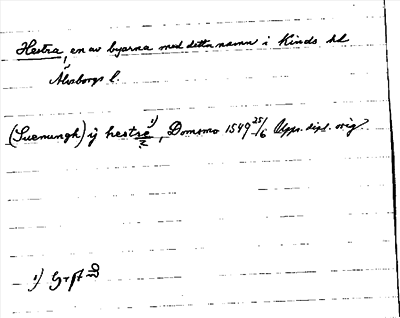 Hestra, en av byarna med detta namn i Kinds hd
Älvsborgs l.
(Suenungh) ÿ hestre 1), Domsmo 1549 25/6 Uppr. dipl. orig.
?
1)